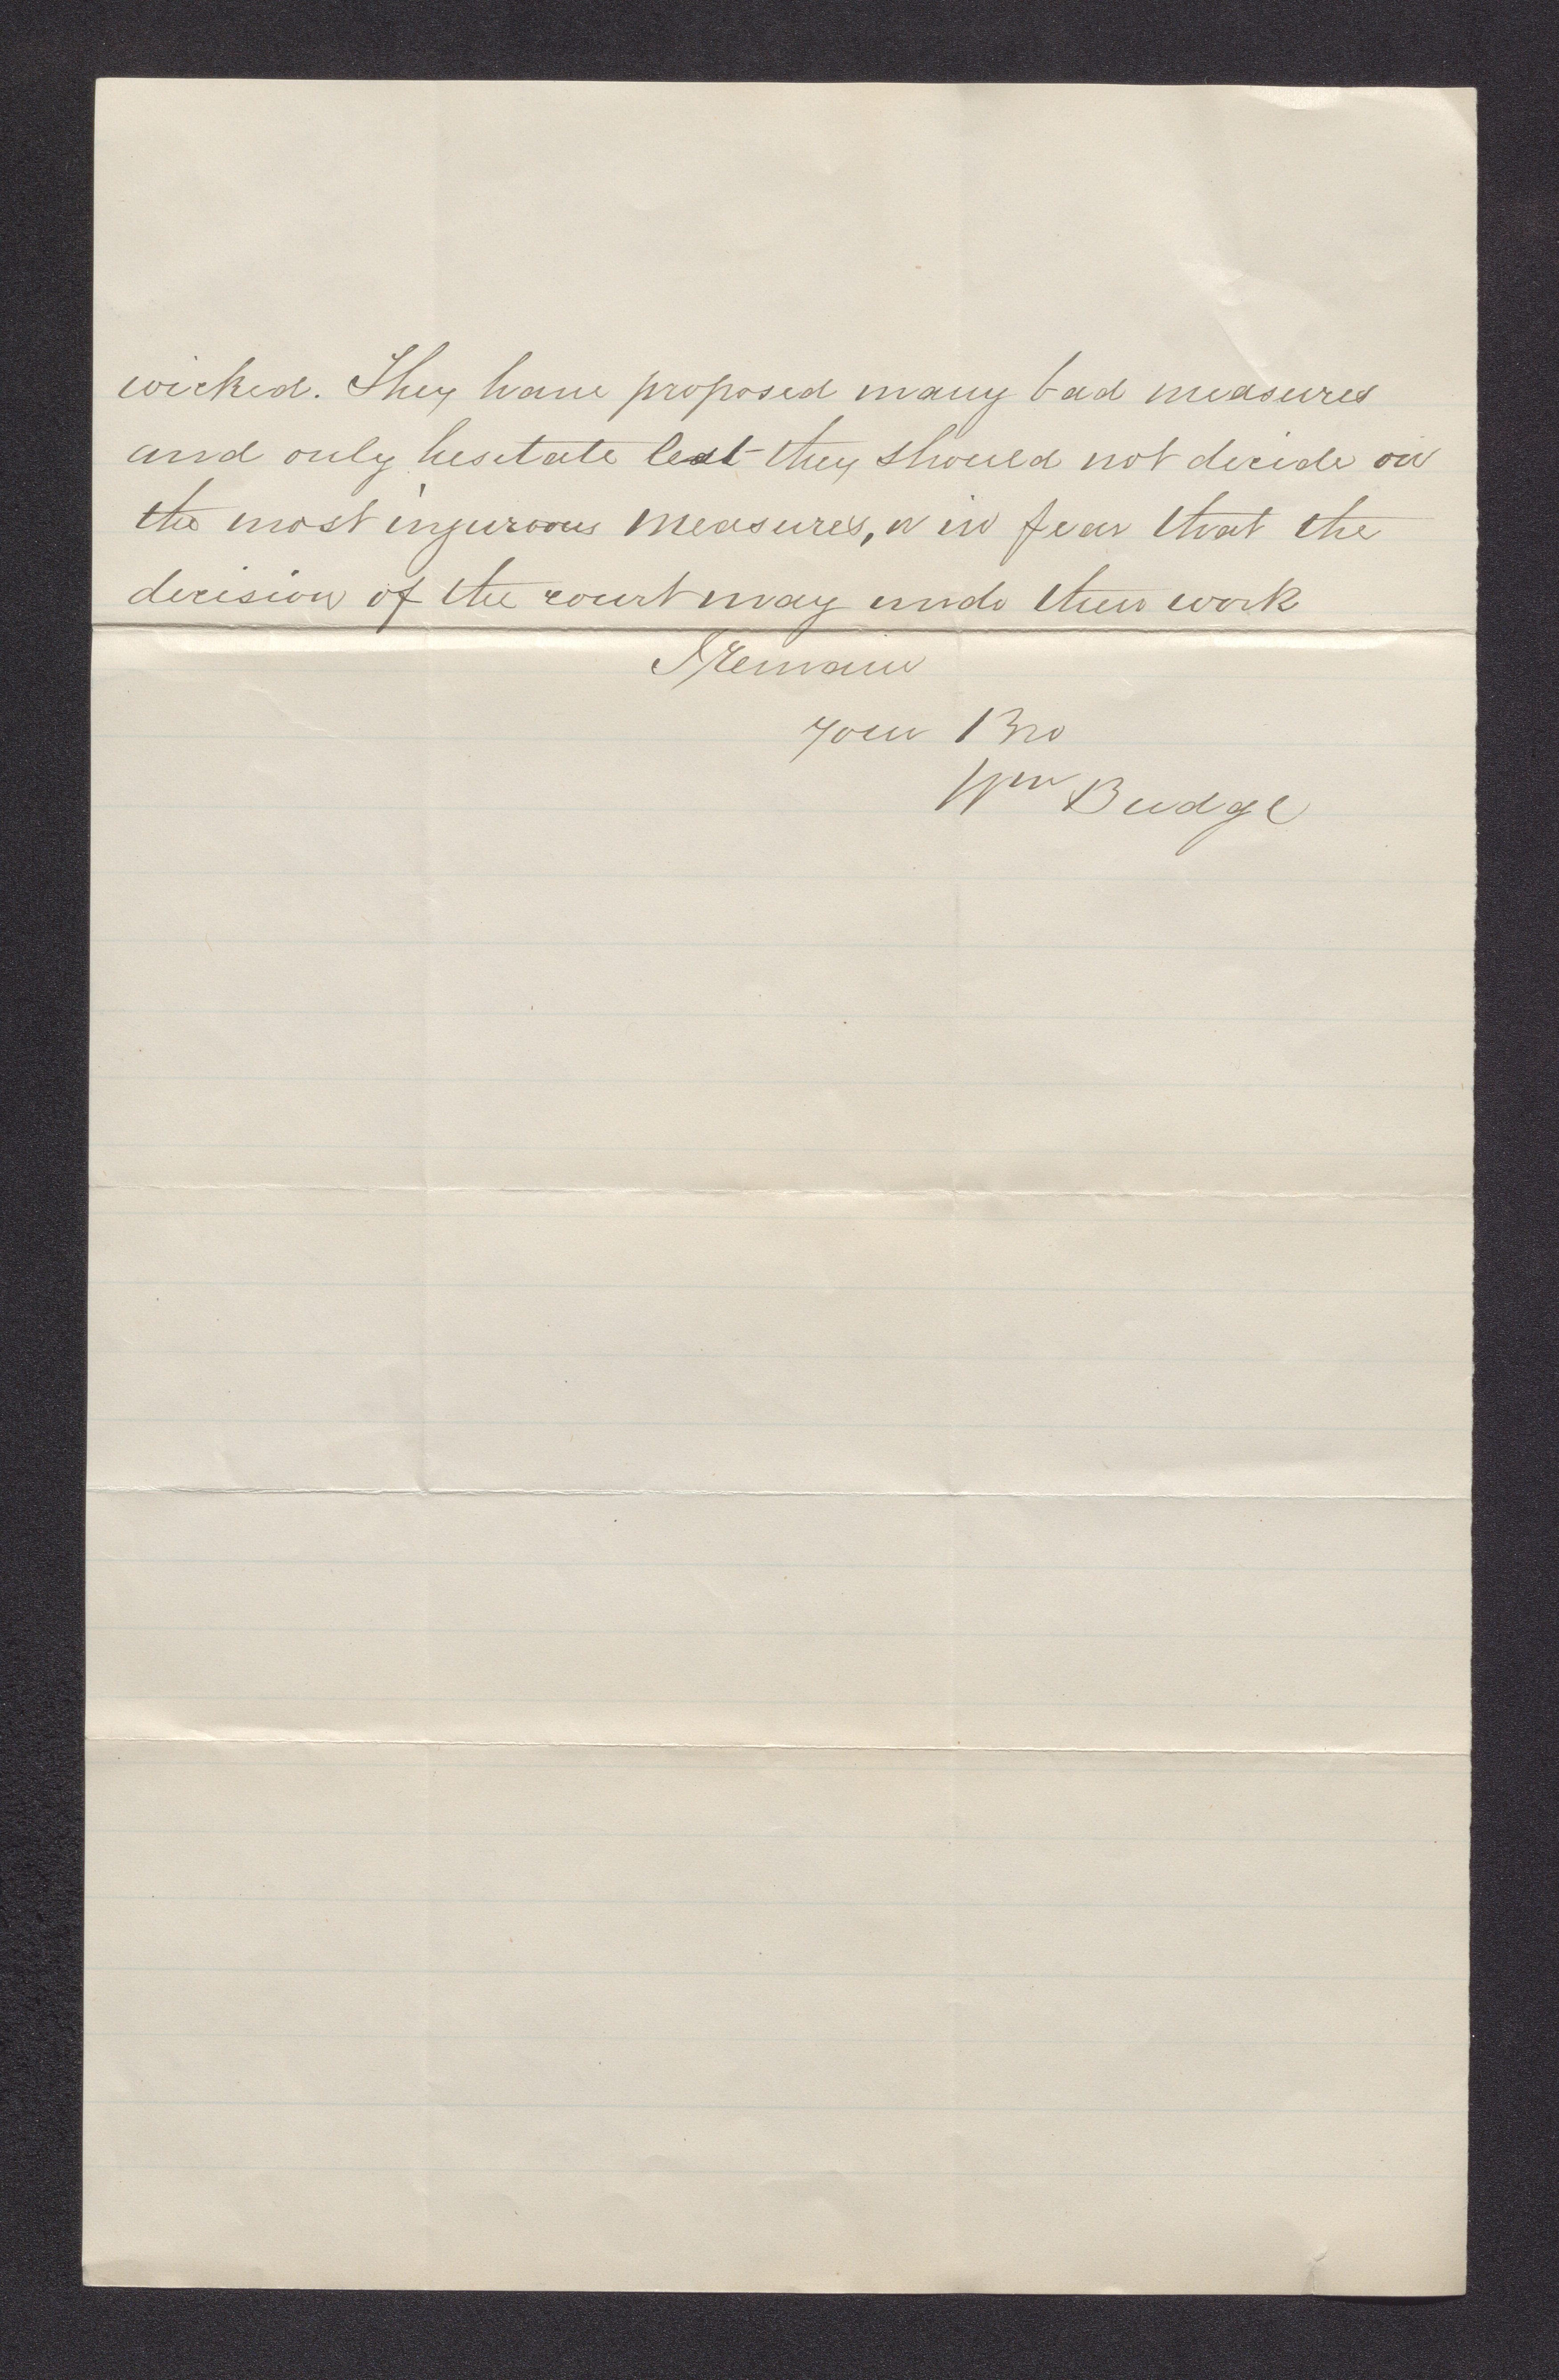 wicked. They have proposed many bad measures
and only hesitate lest they should not decide on
the most injuroous measures, or in fear that the
decision of the court may undo their work
I remain
your Bro
Wm Budge